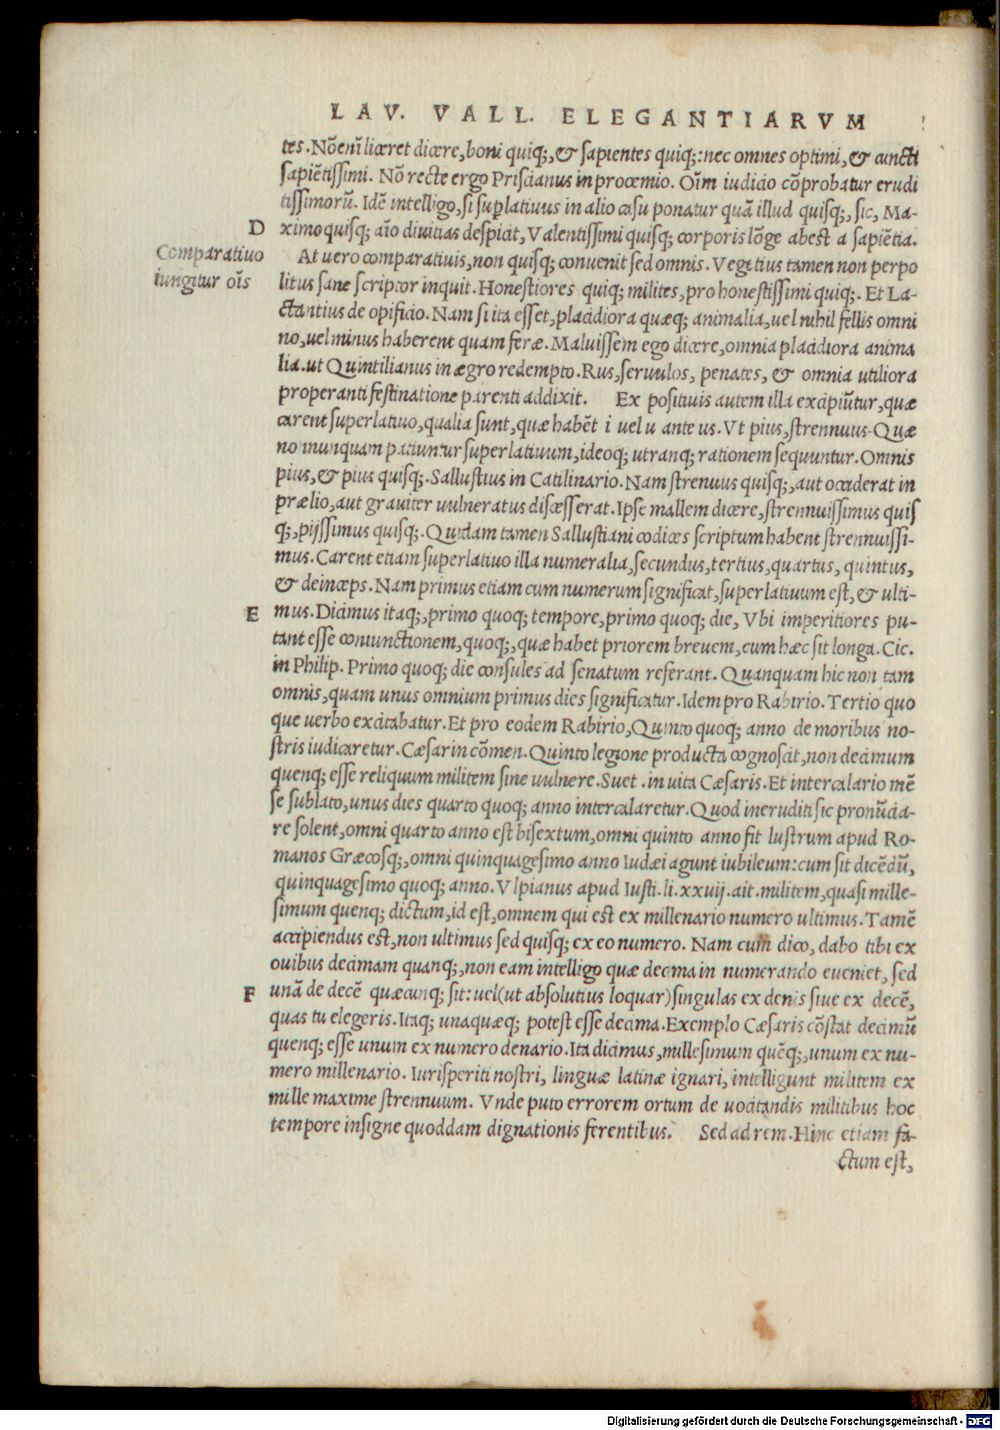 LAV. VALL. ELEGANTIARVM
tes. Nõ em̃ liceret dicere, boni quiq;, & sapientes quiq;: nec omnes optimi, & cuncti
sapiẽtissimi. Nõ recte ergo Priscianus in procemio. Oĩm iudicio cõprobatur erudi
tissimorũ. Idẽ intelligo, si suꝑlatiuus in alio casu ponatur quã illud quisq;, sic, Ma-
D
ximo quisq; aĩo diuitias despicit, Valentissimi quisq; corporis lõge abest a sapiẽtia.
Comparatiuo
iungitur oĩs
At uero comparatiuis, non quisq; conuenit sed omnis. Vegetius tamen non perpo
litus sane scriptor inquit. Honestiores quiq; milites, pro honestissimi quiq;. Et La-
ctantius de opificio. Nam si ita esset, placidiora quæq; animalia, uel nihil fellis omni
no, uel minus haberent quam feræ. Maluissem ego dicere, omnia placidiora anima
lia. ut Quintilianus in ægro redempto. Rus, seruulos, penates, & omnia utiliora
properanti festinatione parenti addixit. Ex positiuis autem illa excipiũtur, quæ
carent superlatiuo, qualia sunt, quæ habẽt i uel u ante us. Vt pius, strennuus. Quæ
nonnunquam patiuntur superlatiuum, ideoq; utranq; rationem sequuntur. Omnis
pius, & pius quisq;. Sallustius in Catilinario. Nam strenuus quisq;, aut occiderat in
prælio, aut grauiter uulneratus discesserat. Ipse mallem dicere, strennuissimus quis
q;, pijssimus quisq;. Quidam tamen Sallustiani codices scriptum habent strennuissi-
mus. Carent etiam superlatiuo illa numeralia, secundus, tertius, quartus, quintus,
& deinceps. Nam primus etiam cum numerum significat, superlatiuum est, & ulti-
E
mus. Dicimus itaq;, primo quoq; tempore, primo quoq; die, Vbi imperitiores pu-
tant esse coniunctionem, quoq;, quæ habet priorem breuem, cum hæc sit longa. Cic.
in Philip. Primo quoq; die consules ad senatum referant. Quanquam hic non tam
omnis, quam unus omnium primus dies significatur. Idem pro Rabirio. Tertio quo
que uerbo excitabatur. Et pro eodem Rabirio, Quinto quoq; anno de moribus no-
stris iudicaretur. Cæsar in cõmen. Quinto legione producta cognoscit, non decimum
quenq; esse reliquum militem sine uulnere. Suet. in uita Cæsaris. Et intercalario mẽ
se sublato, unus dies quarto quoq; anno intercalaretur. Quod ineruditi sic pronũcia-
re solent, omni quarto anno est bisextum, omni quinto anno fit lustrum apud Ro-
manos Græcosq;, omni quinquagesimo anno Iudæi agunt iubileum: cum sit dicẽdũ,
quinquagesimo quoq; anno. Vlpianus apud Iusti. li. xxvij. ait. militem, quasi mille-
simum quenq; dictum, id est, omnem qui est ex millenario numero ultimus. Tamẽ
accipiendus est, non ultimus sed quisq; ex eo numero. Nam cum dico, dabo tibi ex
ouibus decimam quanq;, non eam intelligo quæ decima in numerando eueniet, sed
F
unã de decẽ quæcunq; sit: uel (ut absolutius loquar) singulas ex denis siue ex decẽ,
quas tu elegeris. Itaq; unaquæq; potest esse decima. Exemplo Cæsaris cõstat decimũ
quenq; esse unum ex numero denario. Ita dicimus, millesimum quẽq;, unum ex nu-
mero millenario. Iurisperiti nostri, linguæ latinæ ignari, intelligunt militem ex
mille maxime strennuum. Vnde puto errorem ortum de uocitandis militibus hoc
tempore insigne quoddam dignationis ferentibus. Sed ad rem. Hinc etiam fa-
ctum est,
Digitalisierung gefördert durch die Deutsche Forschungsgemeinschaft - DFG